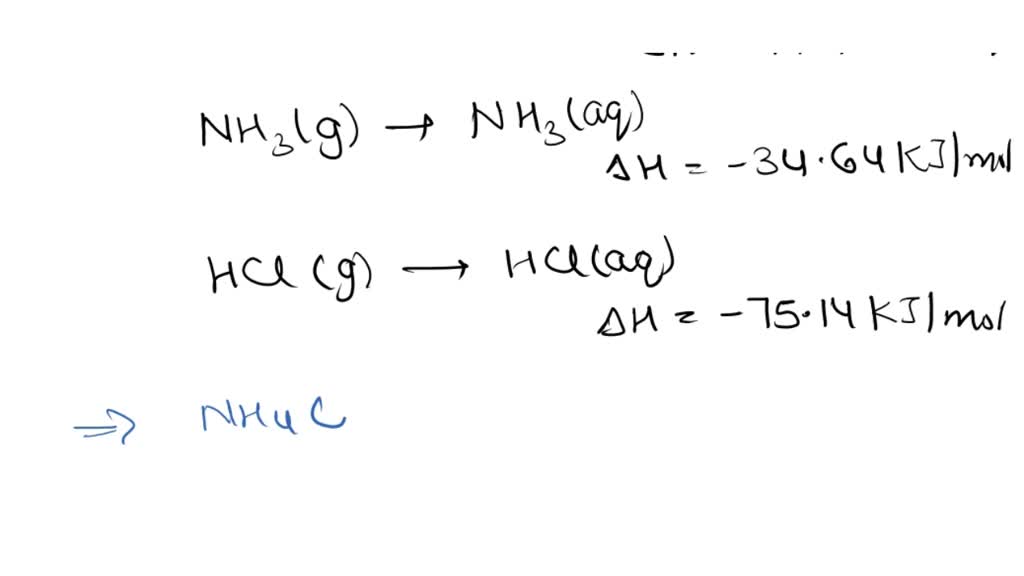 NH₃(g) → NH₃(aq)
ΔH = -34.64 KJ/mol
HCl (g) → HCl(aq)
ΔH = -75.14 KJ/mol
⇒ NH4C